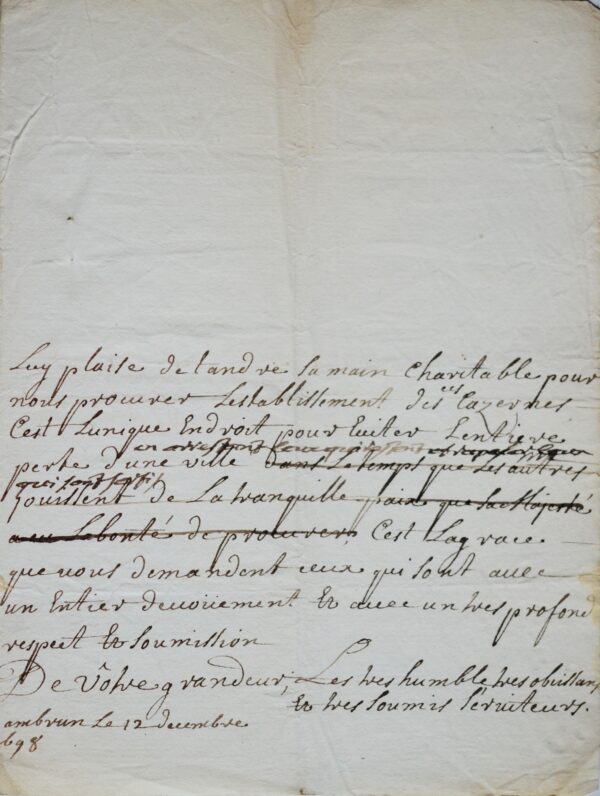 Luy plaise de tandre sa main charitable pour
nous procurer Lestablissement des Cazernes
C'est Lunique Endroit pour Eviter Lentiere
en arrestant ceux qui
perte d'une ville dans Le temps que Les autres
qui sont
Jouissent de La tranquille paix que Sa Majesté
a eu La bonté de procurer, C'est La grace
que vous demandent ceux qui sont avec
un Entier devoüement Et avec un tres profond
respect Et Soumission
De Vôtre grandeur, Les tres humble tres obeissans
Et tres Soumis Serviteurs.
ambrun Le 12 decembre
698